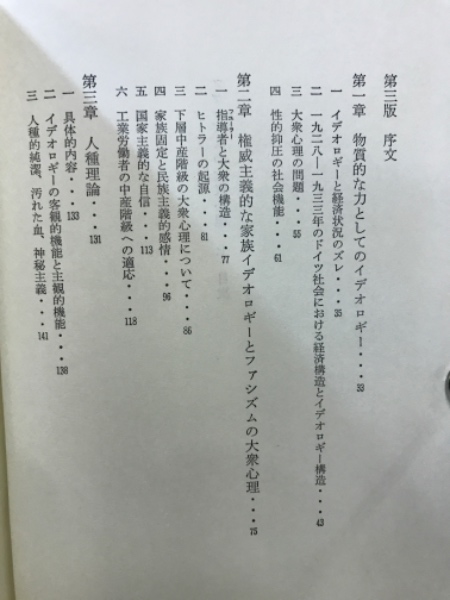 第三版 序文
第一章 物質的な力としてのイデオロギー・・・53
一 イデオロギーと経済状況のズレ・・・35
二 一九二八―一九三三年のドイツ社会における経済構造とイデオロギー構造・・・43
三 大衆心理の問題・・・55
四 性的抑圧の社会機能・・・61
第二章 権威主義的な家族イデオロギーとファシズムの大衆心理・・・75
一 指導者と大衆の構造・・・77
二 ヒトラーの起源・・・81
三 下層中産階級の大衆心理について・・・86
四 家族固定と民族主義的感情・・・96
五 国家主義的な自信・・・113
六 工業労働者の中産階級への適応・・・118
第三章 人種理論・・・131
一 具体的内容・・・133
二 イデオロギーの客観的機能と主観的機能・・・138
三 人種的純潔、汚れた血、神秘主義・・・141